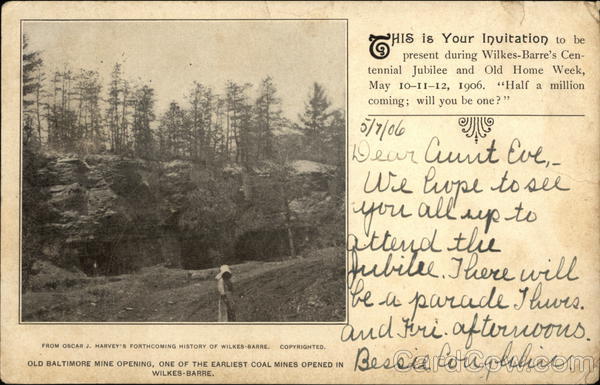 THIS is Your Invitation to be
present during Wilkes-Barre's Cen-
tennial Jubilee and Old Home Week,
May 10-11-12, 1906. "Half a million
coming; will you be one?"
5/7/06
Dear Aunt Eve,-
We hope to see
you all up to
attend the
Jubilee. There will
be a parade Thurs.
and Fri. afternoons.
Bessie
FROM OSCAR J. HARVEY'S FORTHCOMING HISTORY OF WILKES-BARRE. COPYRIGHTED.
OLD BALTIMORE MINE OPENING, ONE OF THE EARLIEST COAL MINES OPENED IN
WILKES-BARRE.
CardCow.com